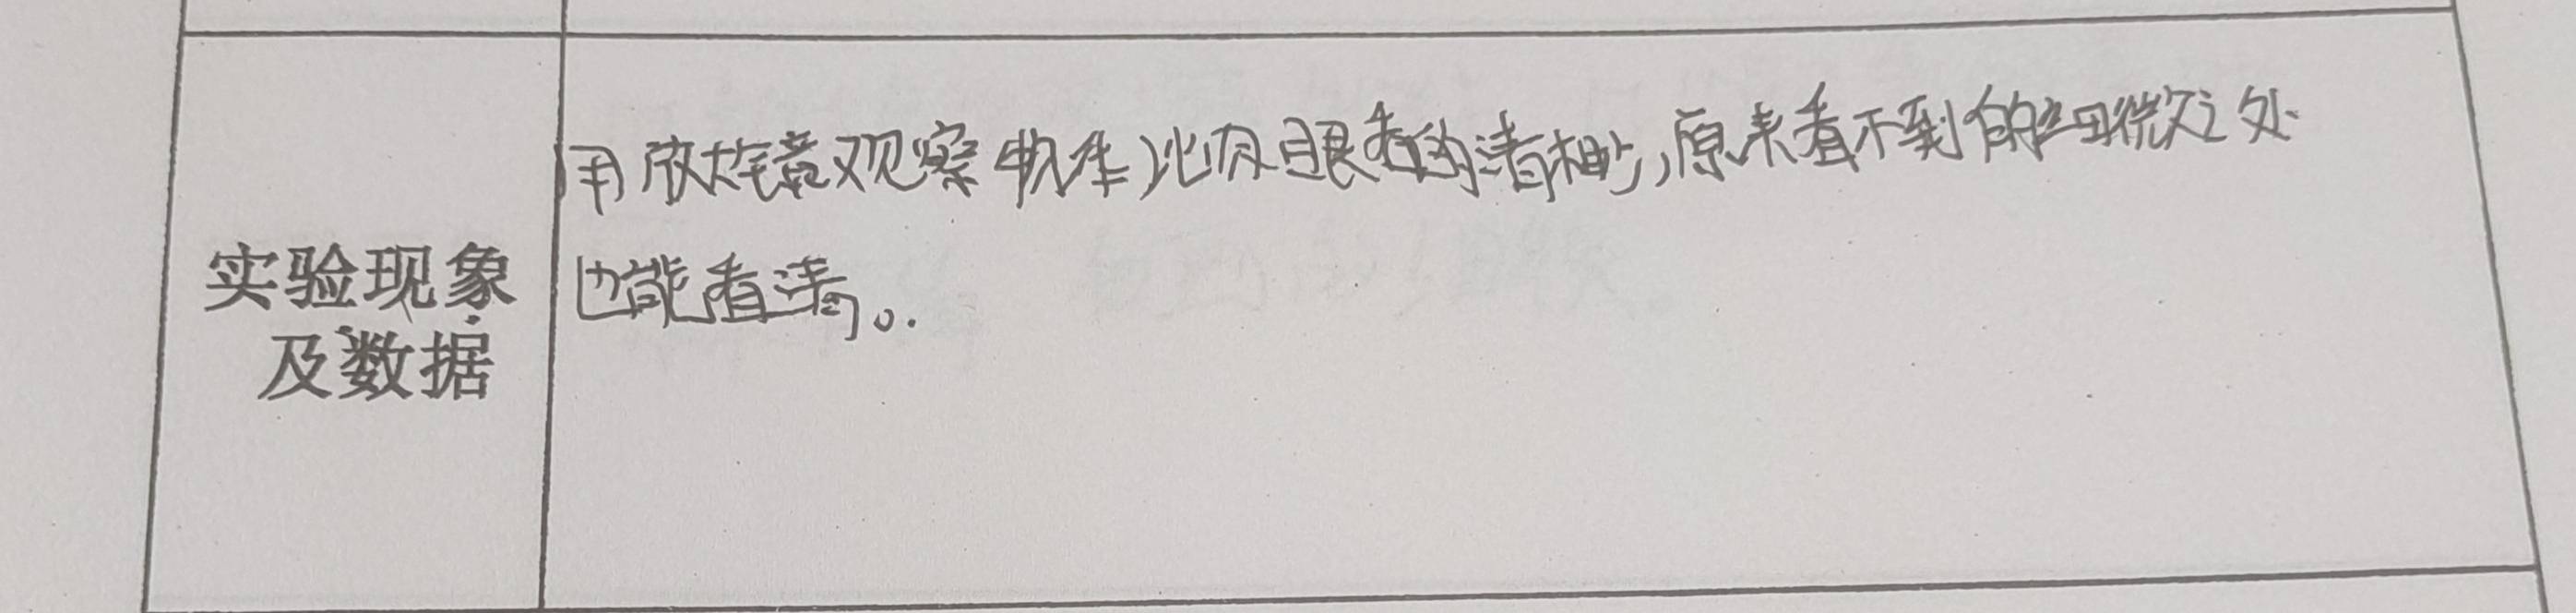 用放大镜观察物体比肉眼看的清楚,原来看不到的细微之处
也能看清。
实验现象
及数据